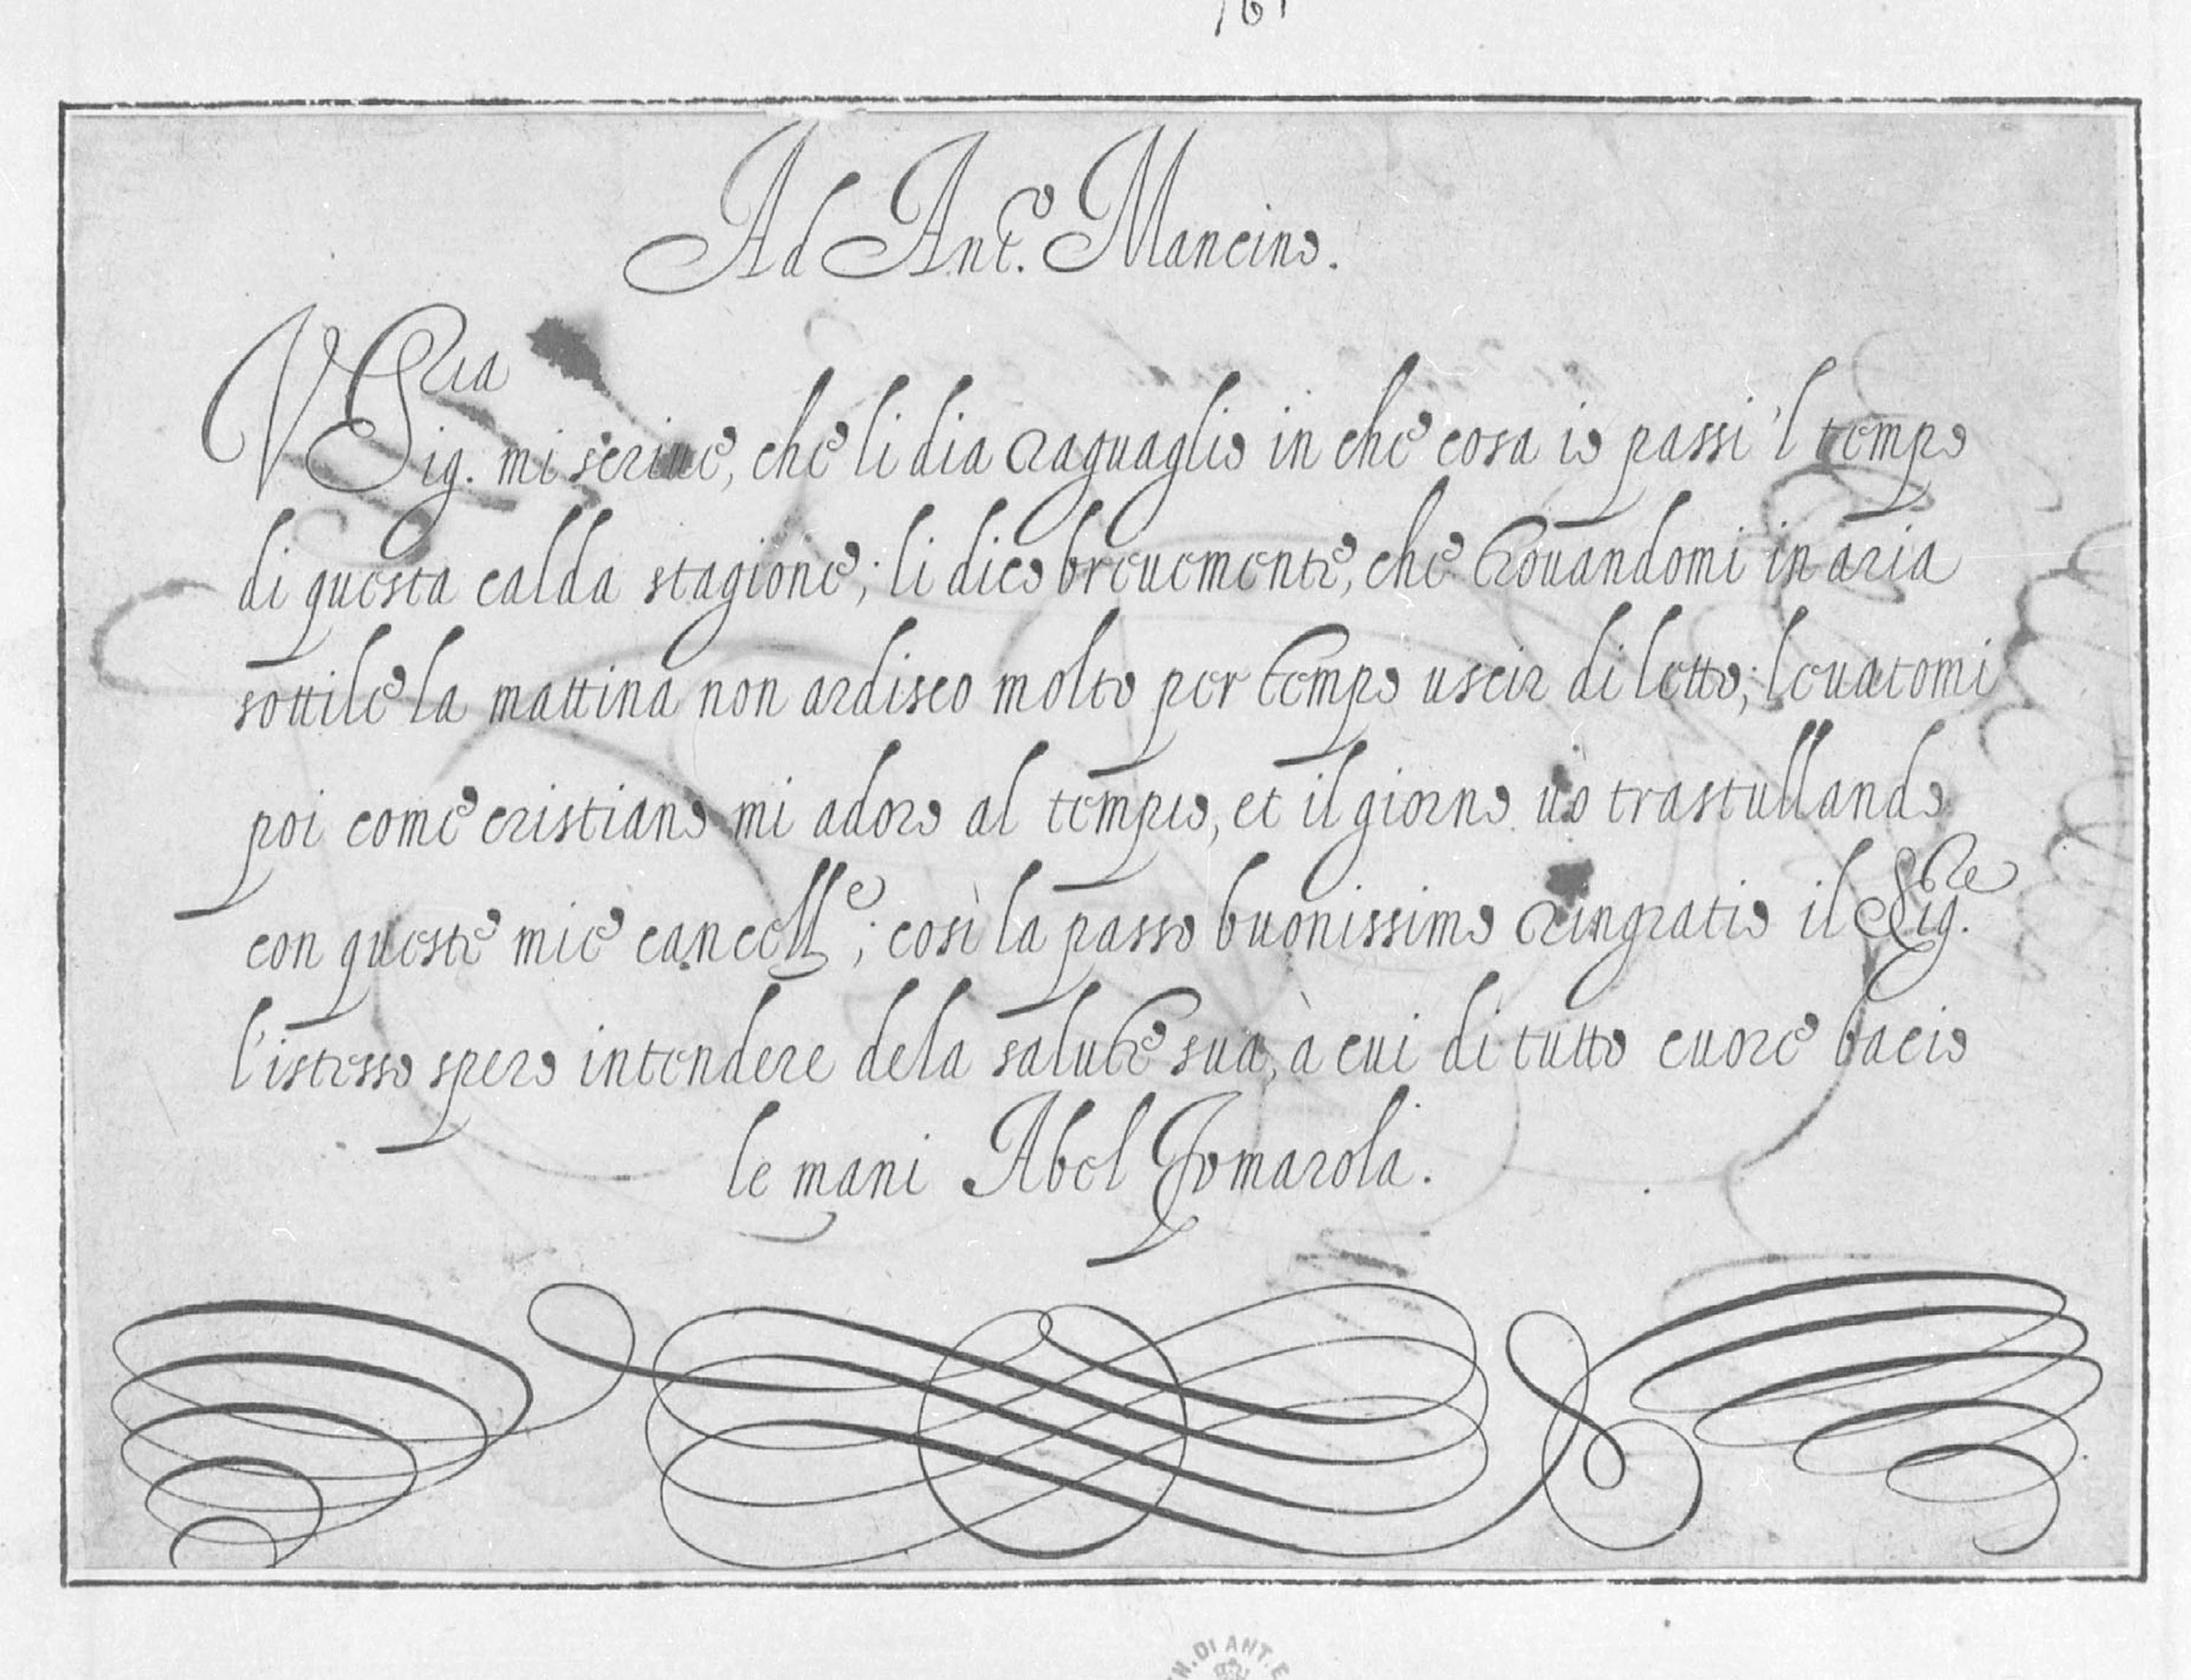 161
Ad Ant.o Mancino.
V Sig.ria mi scriue, che li dia raguaglio in che cosa io passi 'l tempo
di questa calda stagione; li dico breuemente, che trouandomi in aria
sottile la mattina non ardisco molto per tempo uscir di letto; leuatomi
poi come cristiano mi adoro al tempio, et il giorno uò trastullando
con queste mie cancell.e; così la passo buonissimo ringratio il Sig.re
l'istesso spero intendere dela salute sua, à cui di tutto cuore bacio
le mani Abel Jomarola.
N.DI ANT.E